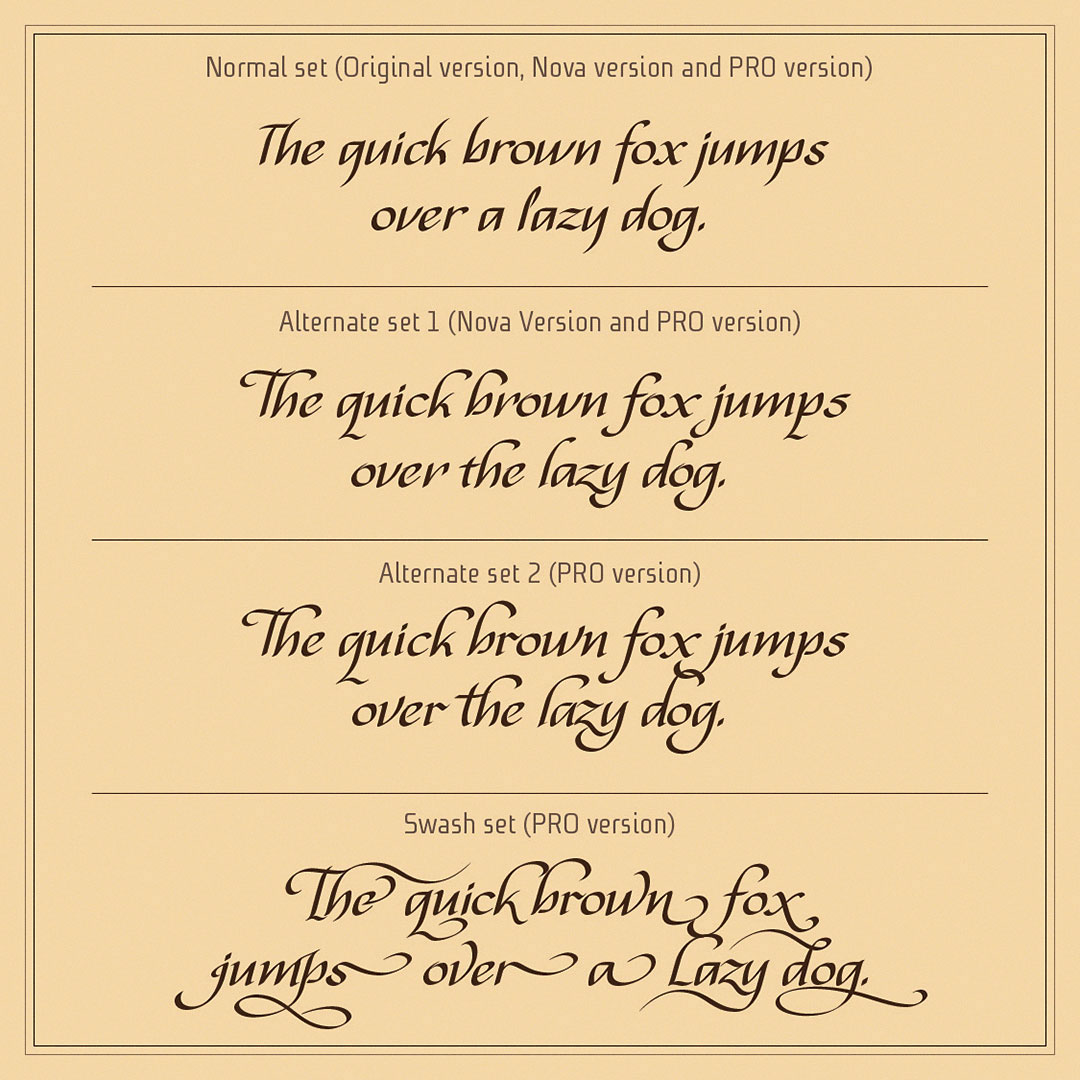 Normal set (Original version, Nova version and PRO version)
The quick brown fox jumps
over a lazy dog.
Alternate set 1 (Nova Version and PRO version)
The quick brown fox jumps
over the lazy dog.
Alternate set 2 (PRO version)
The quick brown fox jumps
over the lazy dog.
Swash set (PRO version)
The quick brown fox
jumps over a Lazy dog.